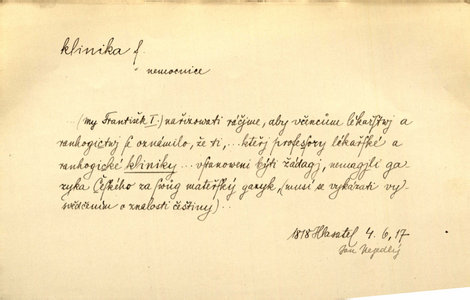 klinika f.
nemocnice
... (my František I.) nařizowati ráčjme, aby včencům lékařstwj a
ranhogictwj k oznámilo, že ti, ... kteřj professory lékařské a
ranhogické kliniky ... vstanoweni býti žádagj, nemagjli ga-
zyka Českého za swůg mateřský gazyk, (musí se vykázati vy-
swědčením o znalosti češtiny) ...
1818 Hlasatel 4. 6, 17
Jan Nejedlý